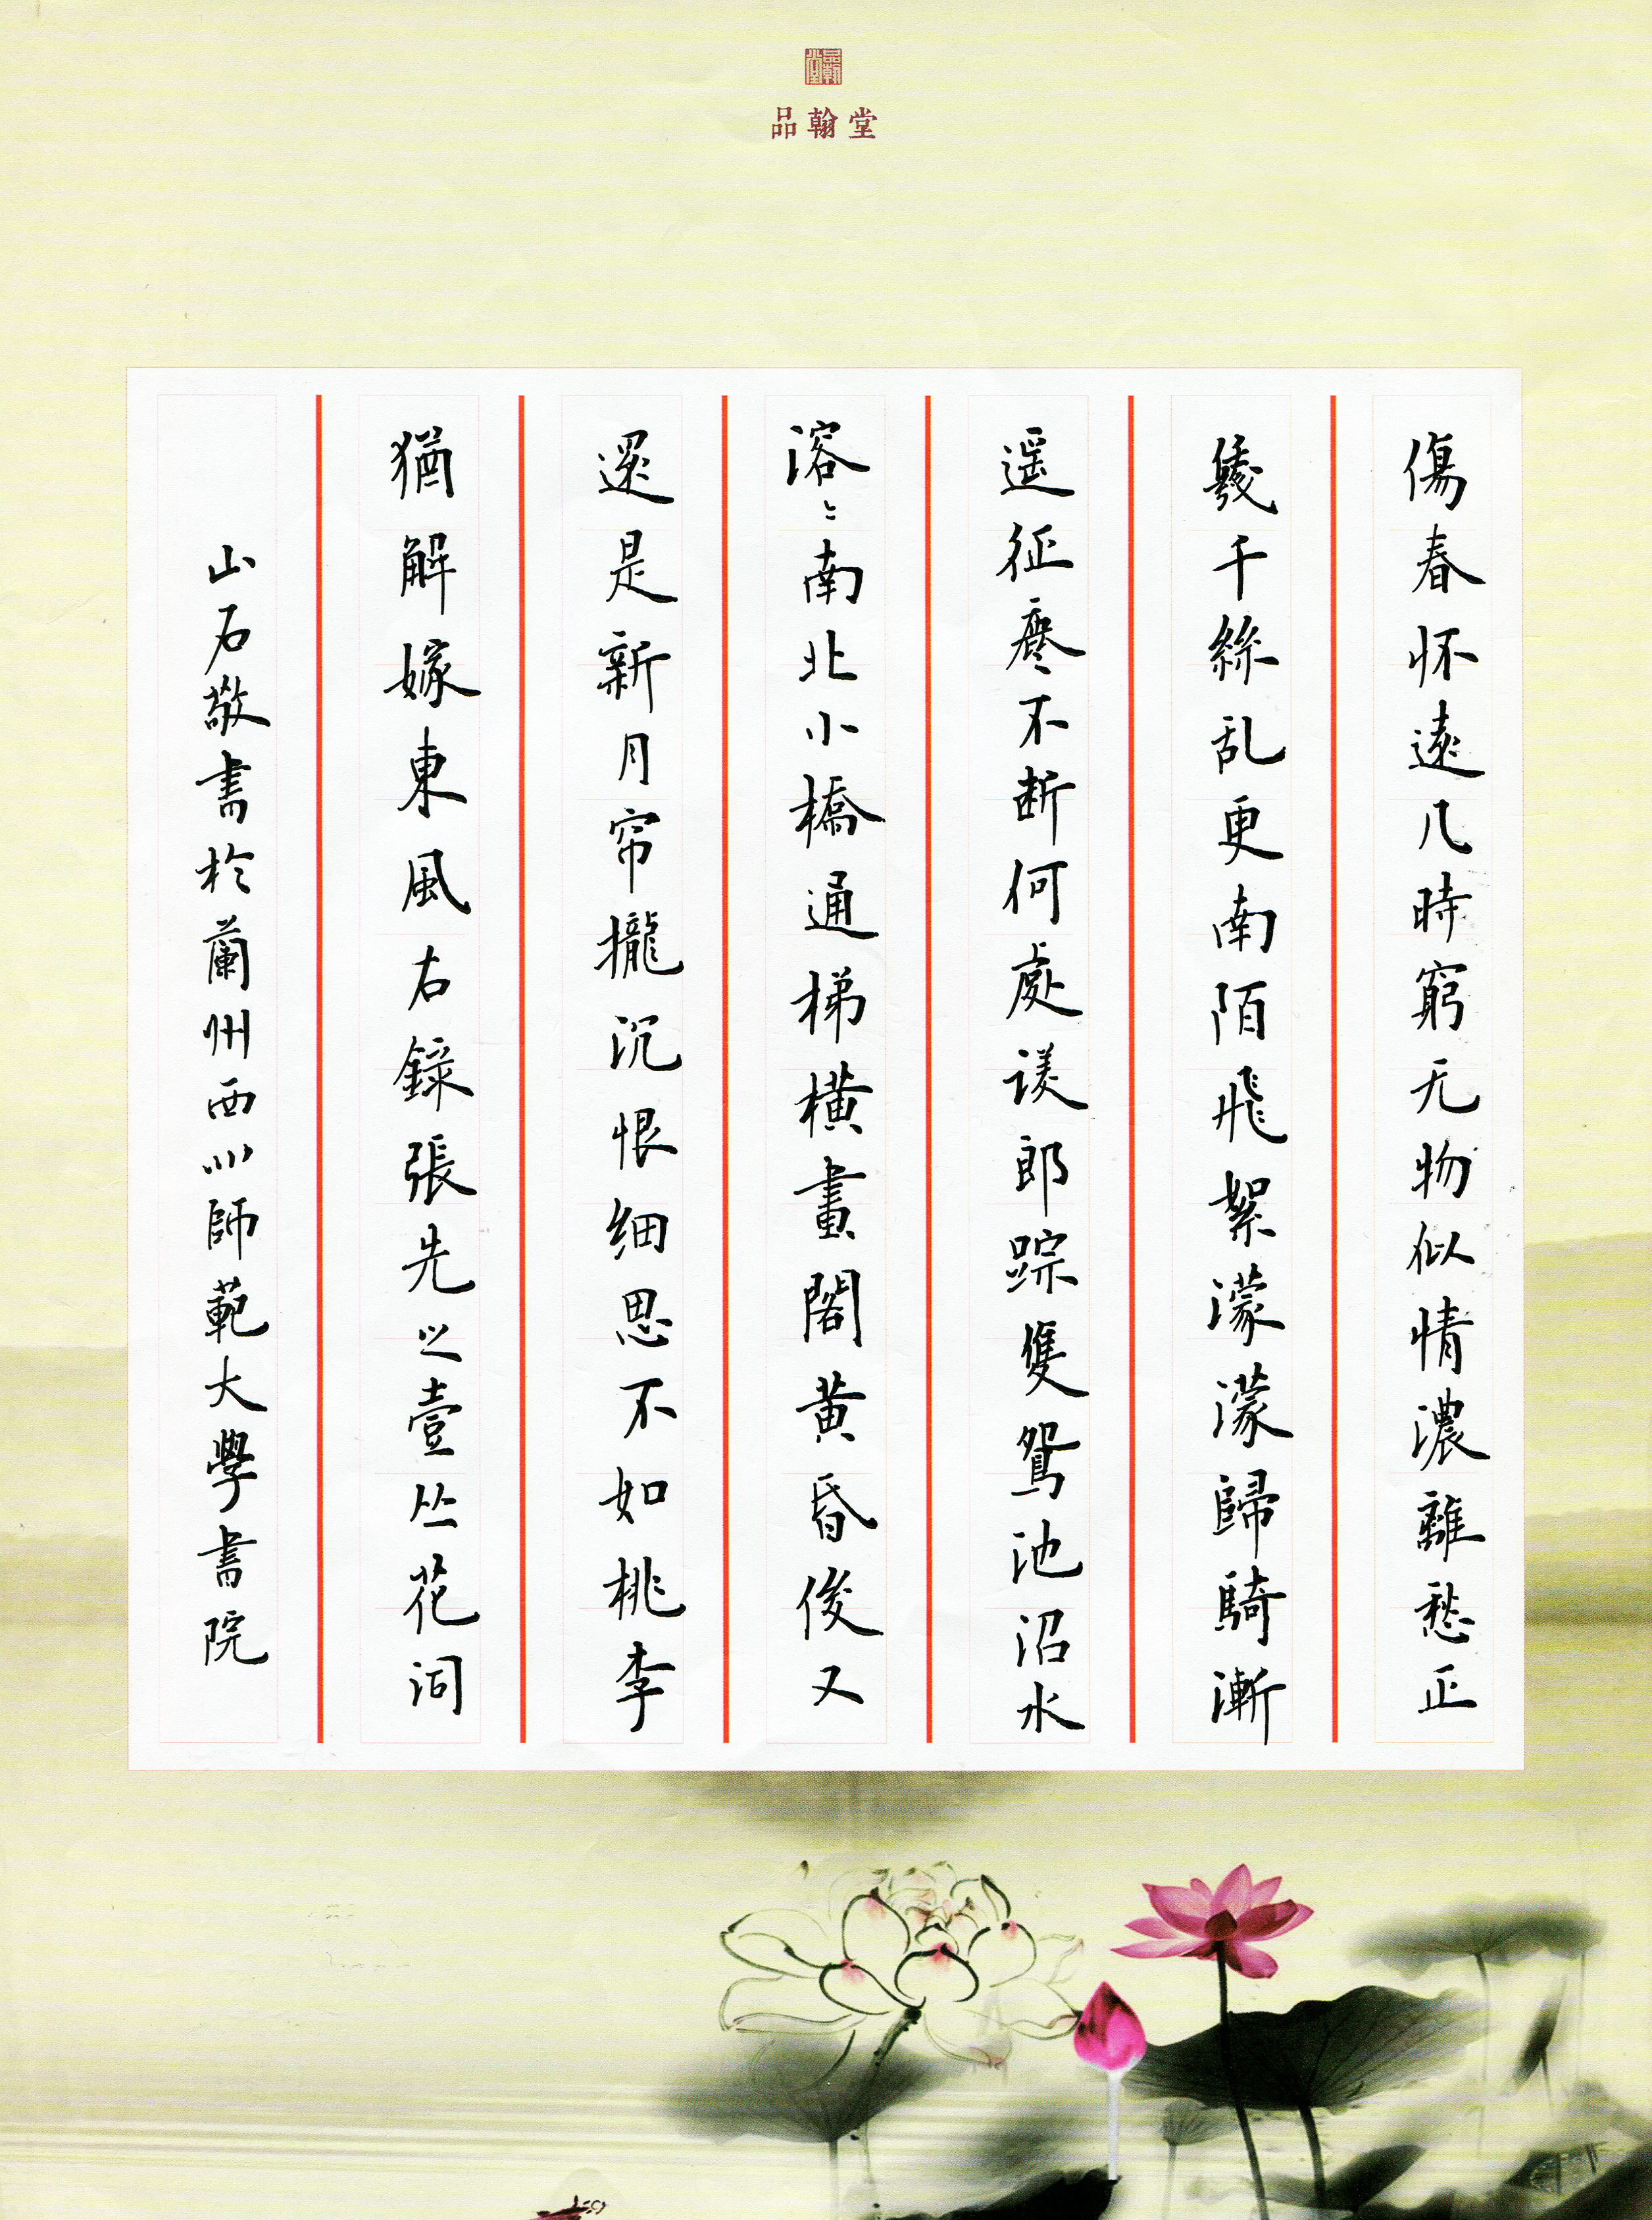 品翰堂
品翰堂
傷春怀遠几時窮无物似情濃離愁正
千絲乱更南陌飛絮濛濛歸騎漸
遥征塵不断何處郎踪雙鴛池沼水
溶〻南北小橋通梯横畫閣黄昏俊又
還是新月帘攏沉恨细思不如桃李
猶解嫁東風右錄張先之壹丛花词
山石敬書於蘭州西師範大學書院